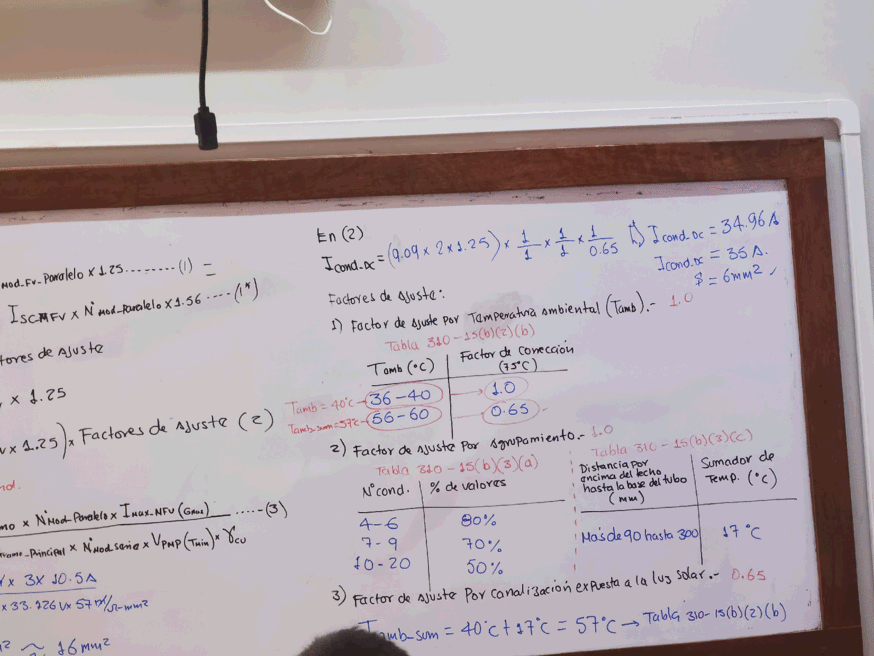 Mod-FV-Paralelo x 1.25 ......... (1) =
ISCMFV x N°Mod-Paralelo x 1.56 .... (1*)
tores de Ajuste
x 1.25
v x 1.25) x Factores de Ajuste (2)
nd.
mo x N°Mod-Paralelo x Imax-MFV (Gmax) ..... (3)
Principal x N°Mod serie x VPMP (Tmin) x γcu
x 3 x 10.5A
x 33.126V x 57 m/Ω-mm²
≈ 16mm²
En (2)
Icond-DC = (9.09 x 2 x 1.25) x 1/1 x 1/1 x 1/0.65 ⇒ Icond-DC = 34.96 A
Icond.DC = 35 A.
S = 6mm²
Factores de Ajuste:
1) Factor de Ajuste por Temperatura Ambiental (Tamb).- 1.0
Tabla 310-15(b)(2)(b)
Tamb (°C) Factor de Corrección (75°C)
Tamb = 40°C → 36-40 → 1.0
Tamb-sum = 57°C → 56-60 → 0.65
2) Factor de Ajuste Por Agrupamiento.- 1.0
Tabla 310-15(b)(3)(a)
N°cond. % de valores
4-6 80%
7-9 70%
10-20 50%
Tabla 310-15(b)(3)(c)
Distancia por
encima del techo
hasta la base del tubo
(mm)
Sumador de
Temp. (°C)
Más de 90 hasta 300 17 °C
3) Factor de Ajuste Por canalización expuesta a la luz solar.- 0.65
Tamb-sum = 40°C + 17°C = 57°C → Tabla 310-15(b)(2)(b)